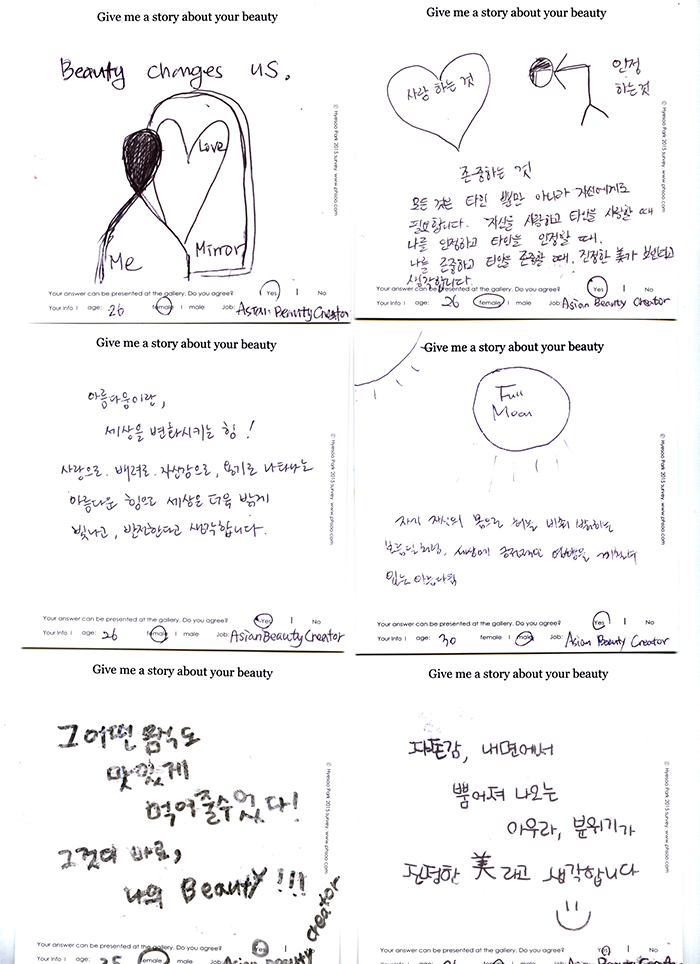 Give me a story about your beauty
Beauty changes us.
Love
Me
Mirror
© Hyesoo Park 2015 survey www.phsoo.com
Your answer can be presented at the gallery. Do you agree? Yes I No
Your Info I age: 26 female I male Job: Asian Beauty Creator
Give me a story about your beauty
사랑 하는 것
인정
하는것
존중하는 것
모든 것은 타인 뿐만 아니라 자신에게도
필요합니다. 자신을 사랑하고 타인을 사랑할 때
나를 인정하고 타인을 인정할 때,
나를 존중하고 타인을 존중할 때, 진정한 美가 보인다고
생각합니다.
© Hyesoo Park 2015 survey www.phsoo.com
Your answer can be presented at the gallery. Do you agree? Yes I No
Your Info I age: 26 female I male Job: Asian Beauty Creator
Give me a story about your beauty
아름다움이란,
세상을 변화시키는 힘!
사랑으로. 배려로. 자신감으로, 용기로 나타나는
아름다운 힘으로 세상을 더욱 밝게
빛나고, 발전한다고 생각합니다.
© Hyesoo Park 2015 survey www.phsoo.com
Your answer can be presented at the gallery. Do you agree? Yes I No
Your Info I age: 26 female I male Job: Asian Beauty Creator
Give me a story about your beauty
Full
Moon
자기 자신의 몸으로 하늘 밝히는
보름달처럼, 세상에 영향을
있는 아름다움
© Hyesoo Park 2015 survey www.phsoo.com
Your answer can be presented at the gallery. Do you agree? Yes I No
Your Info I age: 30 female I male Job: Asian Beauty Creator
Give me a story about your beauty
그 어떤 음식도
맛있게
먹어줄수있다!
그것이 바로,
나의 Beauty!!!
© Hyesoo Park 2015 survey www.phsoo.com
Your answer can be presented at the gallery. Do you agree? Yes I
Your Info I age: 25 female I male Asian beauty creator
Give me a story about your beauty
자존감, 내면에서
뿜어져 나오는
아우라, 분위기가
진정한 美 라고 생각합니다
© Hyesoo Park 2015 survey www.phsoo.com
Your answer can be presented at the gallery. Do you agree? Yes I No
Your Info I age: female I male Job: Asian Beauty